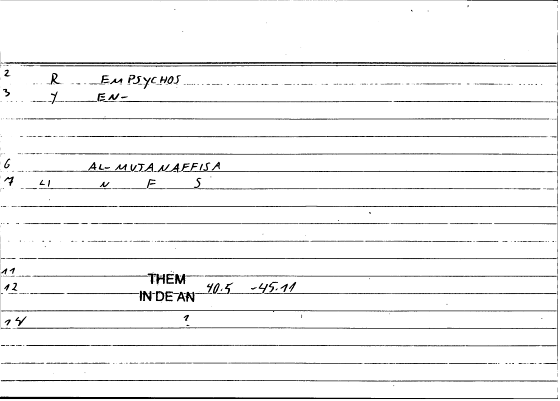 2 R EMPSYCHOS
3 Y EN-
6 AL-MUTANAFFISA
7 LI N F S
11 THEM
12 IN DE AN 40.5 -45.11
14 1